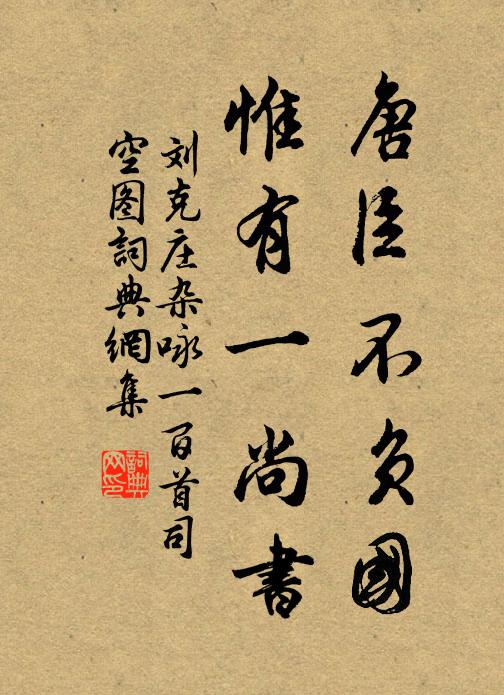 唐臣不负國
惟有一尚書
刘克庄杂咏一百首司
空图詞典網集
詞典
网印